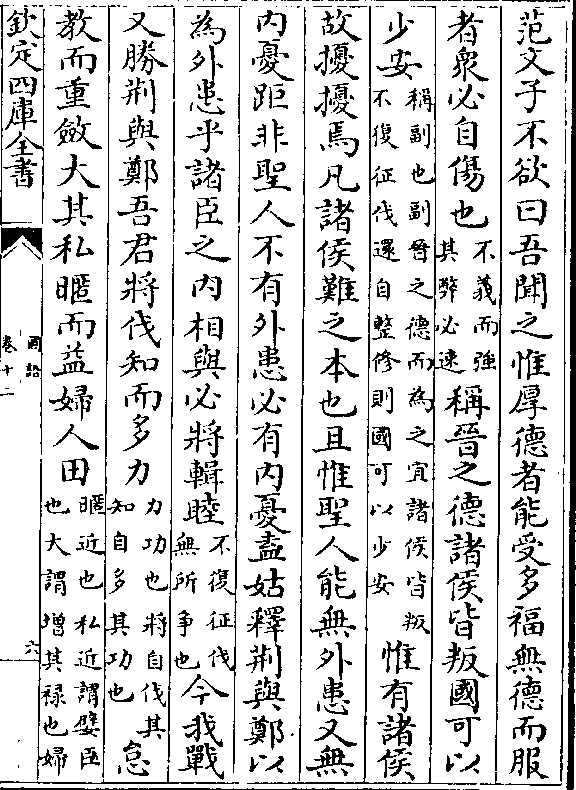 范文子不欲曰吾聞之惟厚德者能受多福無德而服
者衆必自傷也不義而強其弊必速稱晉之德諸侯皆叛國可以
少安稱副也副晉之德而為之宜諸侯皆叛不復征伐還自整修則國可以少安惟有諸侯
故擾擾焉凡諸侯難之本也且惟聖人能無外患又無
内憂距非聖人不有外患必有内憂盍姑釋荆與鄭以
為外患乎諸臣之内相與必將輯睦不復征伐無所爭也今我戰
又勝荆與鄭吾君將伐知而多力力功也將自伐其知自多其功也怠
教而重斂大其私暱而益婦人田暱近也私近謂嬖臣也大謂增其禄也婦
欽定四庫全書
國語
卷十二
六